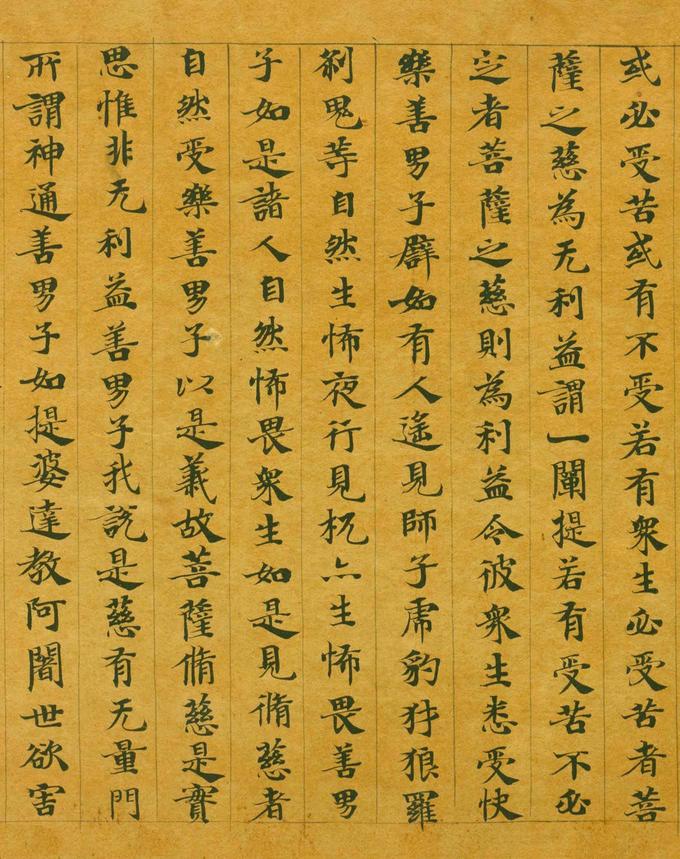 或必受苦或有不受若有衆生必受苦者菩
薩之慈為无利益謂一闡提若有受苦不必
定者菩薩之慈則為利益令彼衆生悉受快
樂善男子譬如有人遥見師子虎豹犲狼羅
刹鬼等自然生怖夜行見杌亦生怖畏善男
子如是諸人自然怖畏衆生如是見脩慈者
自然受樂善男子以是義故菩薩脩慈是實
思惟非无利益善男子我說是慈有无量門
所謂神通善男子如提婆達教阿闍世欲害